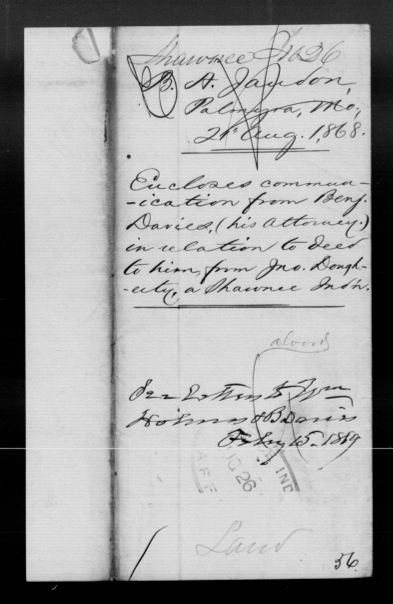 Shawnee J 1026
B. A. Jaudon,
Palmyra, Mo.,
21st Aug. 1868.
Encloses commun-
-ication from Benj.
Davies, (his Attorney.)
in relation to deed
to him, from Jno. Dough-
-erty, a Shawnee Ind'n.
See letters to Wm
Holmes & B Davies
Feby 15, 1869
AUG 26
Land
56.